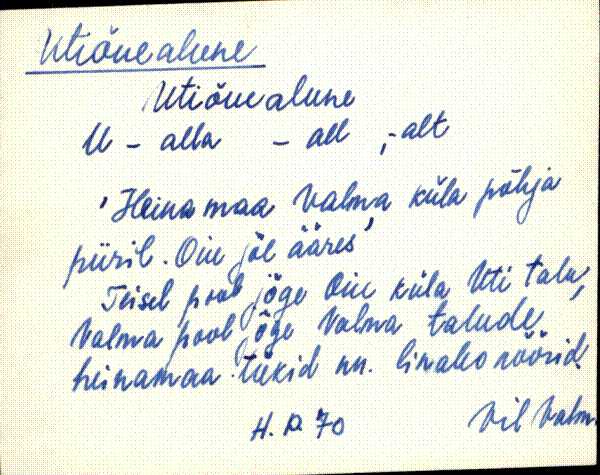 Utiõuealune
Utiõuealune
U – alla – all , -alt
'Heinamaa Valma küla põhja
piiril. Oiu jõe ääres'
Teisel pool jõge Oiu küla Uti talu,
Valma pool jõge Valma talude
heinamaa tükid nn.
H. R. 70 Vil Valm.